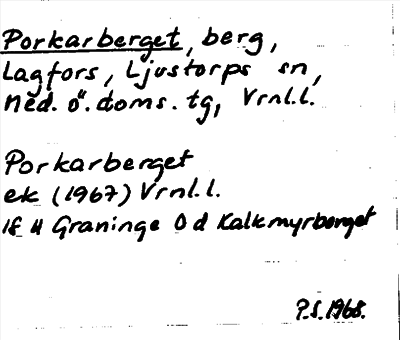 Porkarberget, berg,
Lagfors, Ljustorps sn,
Ned. ö. doms. tg, Vrnl.l.
Porkarberget
ek (1967) Vrnl.l.
lf H Graninge O d Kalkmyrberget
P.S. 1968.